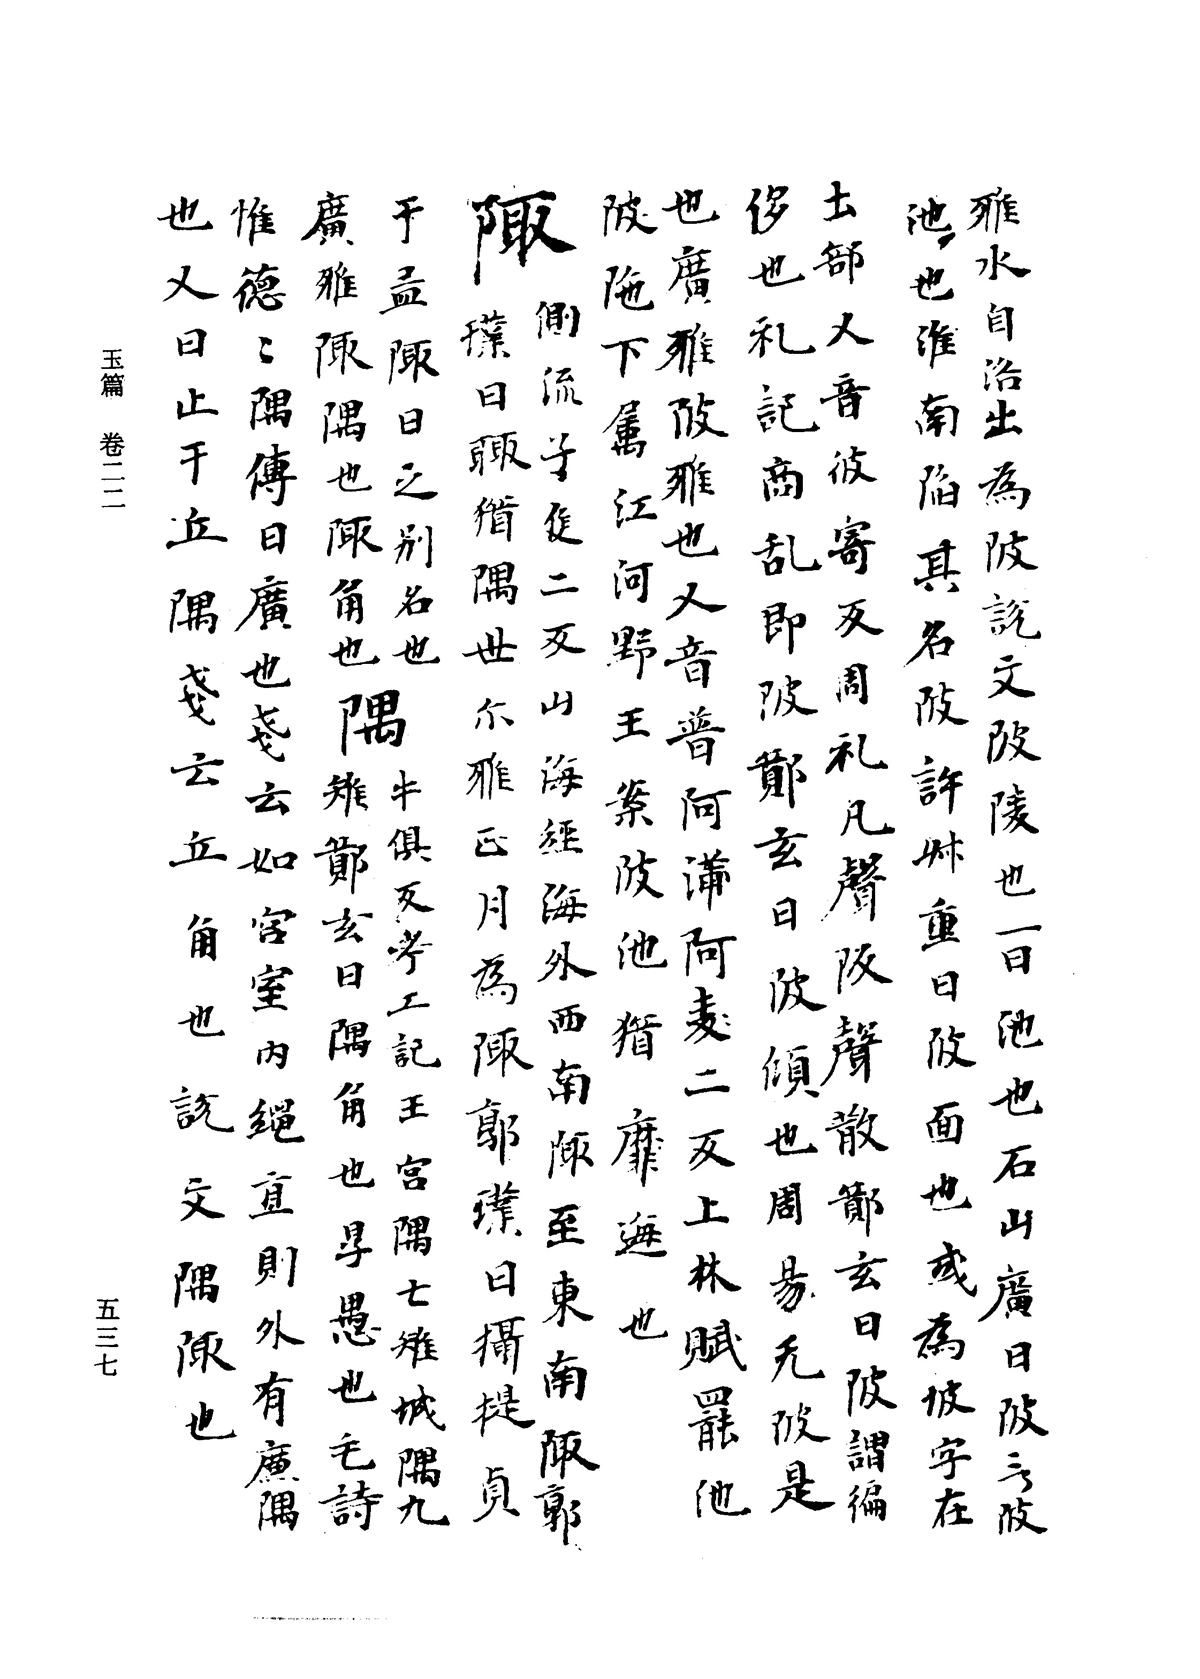 雅水自洛出為陂說文陂陵也一曰池也石山廣曰陂之陂
池〻也淮南陷其名陂許叔重曰陂面也或為坡字在
土部又音彼寄反周礼凡聲阪聲散鄭玄曰陂謂偏
侈也礼記商乱即陂鄭玄曰陂傾也周易无陂是
也廣雅陂雅也又音普阿蒲阿麦二反上林賦罷池
陂陁下属江河野王案陂池猶靡迤也
陬側流子隻二反山海經海外西南陬至東南陬郭
璞曰陬猶隅世尓雅正月為陬郭璞曰攝提貞
于孟陬日之別名也
廣雅陬隅也陬角也隅牛俱反考工記王宮隅七雉城隅九
雉鄭玄曰隅角也㝵愚也毛詩
惟德〻隅傳曰廣也戔云如宮室内繩直則外有廉隅
也又曰止于丘隅戔云丘角也說文隅陬也
玉篇 卷二二
五三七